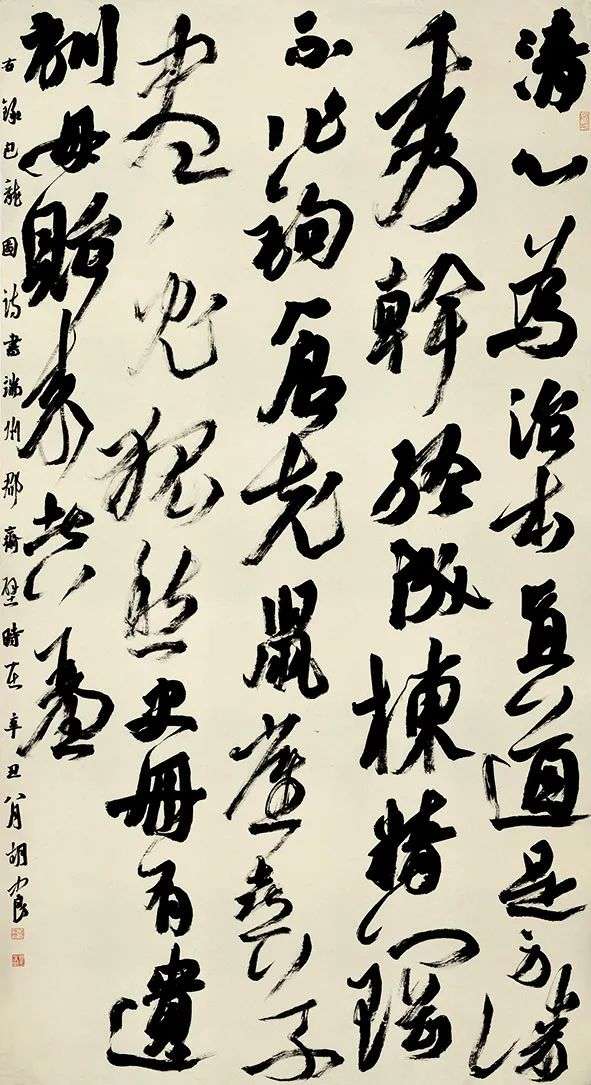 清心為治本直道是身謀
秀幹終成棟精鋼
不作鉤倉充鼠雀喜草
盡兔狐愁史冊有遺
訓毋貽來者羞
右錄包龍圖詩書端州郡齋壁時在辛丑八月胡